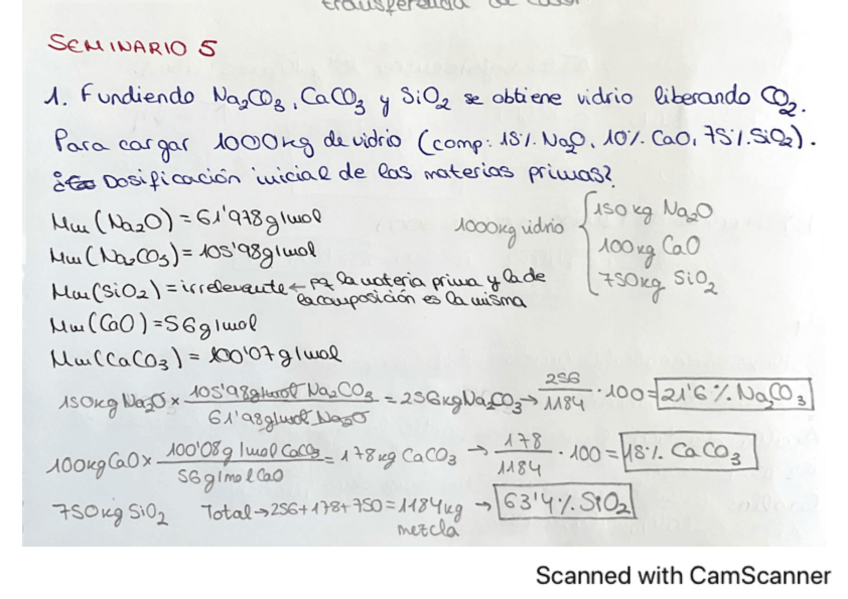 transferencia de calor
SEMINARIO 5
1. Fundiendo Na2CO3, CaCO3 y SiO2 se obtiene vidrio liberando CO2.
Para cargar 1000kg de vidrio (comp: 15%. Na2O, 10%. CaO, 75%. SiO2).
¿ Dosificación inicial de las materias primas?
Mm (Na2O) = 61'978g/mol
Mm (Na2CO3) = 105'98g/mol
Mm (SiO2) = irrelevante ← pq la materia prima y la de
la composición es la misma
Mm (CaO) = 56g/mol
Mm (CaCO3) = 100'07g/mol
1000kg vidrio { 150kg Na2O
100kg CaO
750kg SiO2
150kg Na2O × 105'98g/mol Na2CO3 / 61'98g/mol Na2O = 256kg Na2CO3 → 256/1184 · 100 = 21'6% Na2CO3
100kg CaO × 100'08g/mol CaCO3 / 56g/mol CaO = 178kg CaCO3 → 178/1184 · 100 = 15% CaCO3
750kg SiO2 Total → 256+178+750 = 1184kg → 63'4% SiO2
mezcla
Scanned with CamScanner